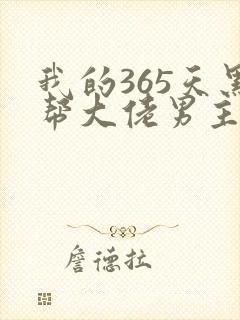 我的365天黑
帮大佬男主
詹德拉